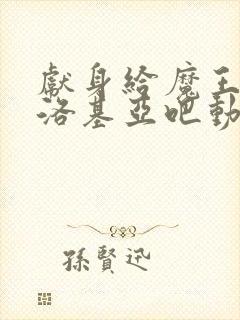 獻身給魔王
洛基亞吧動
孫賢迅